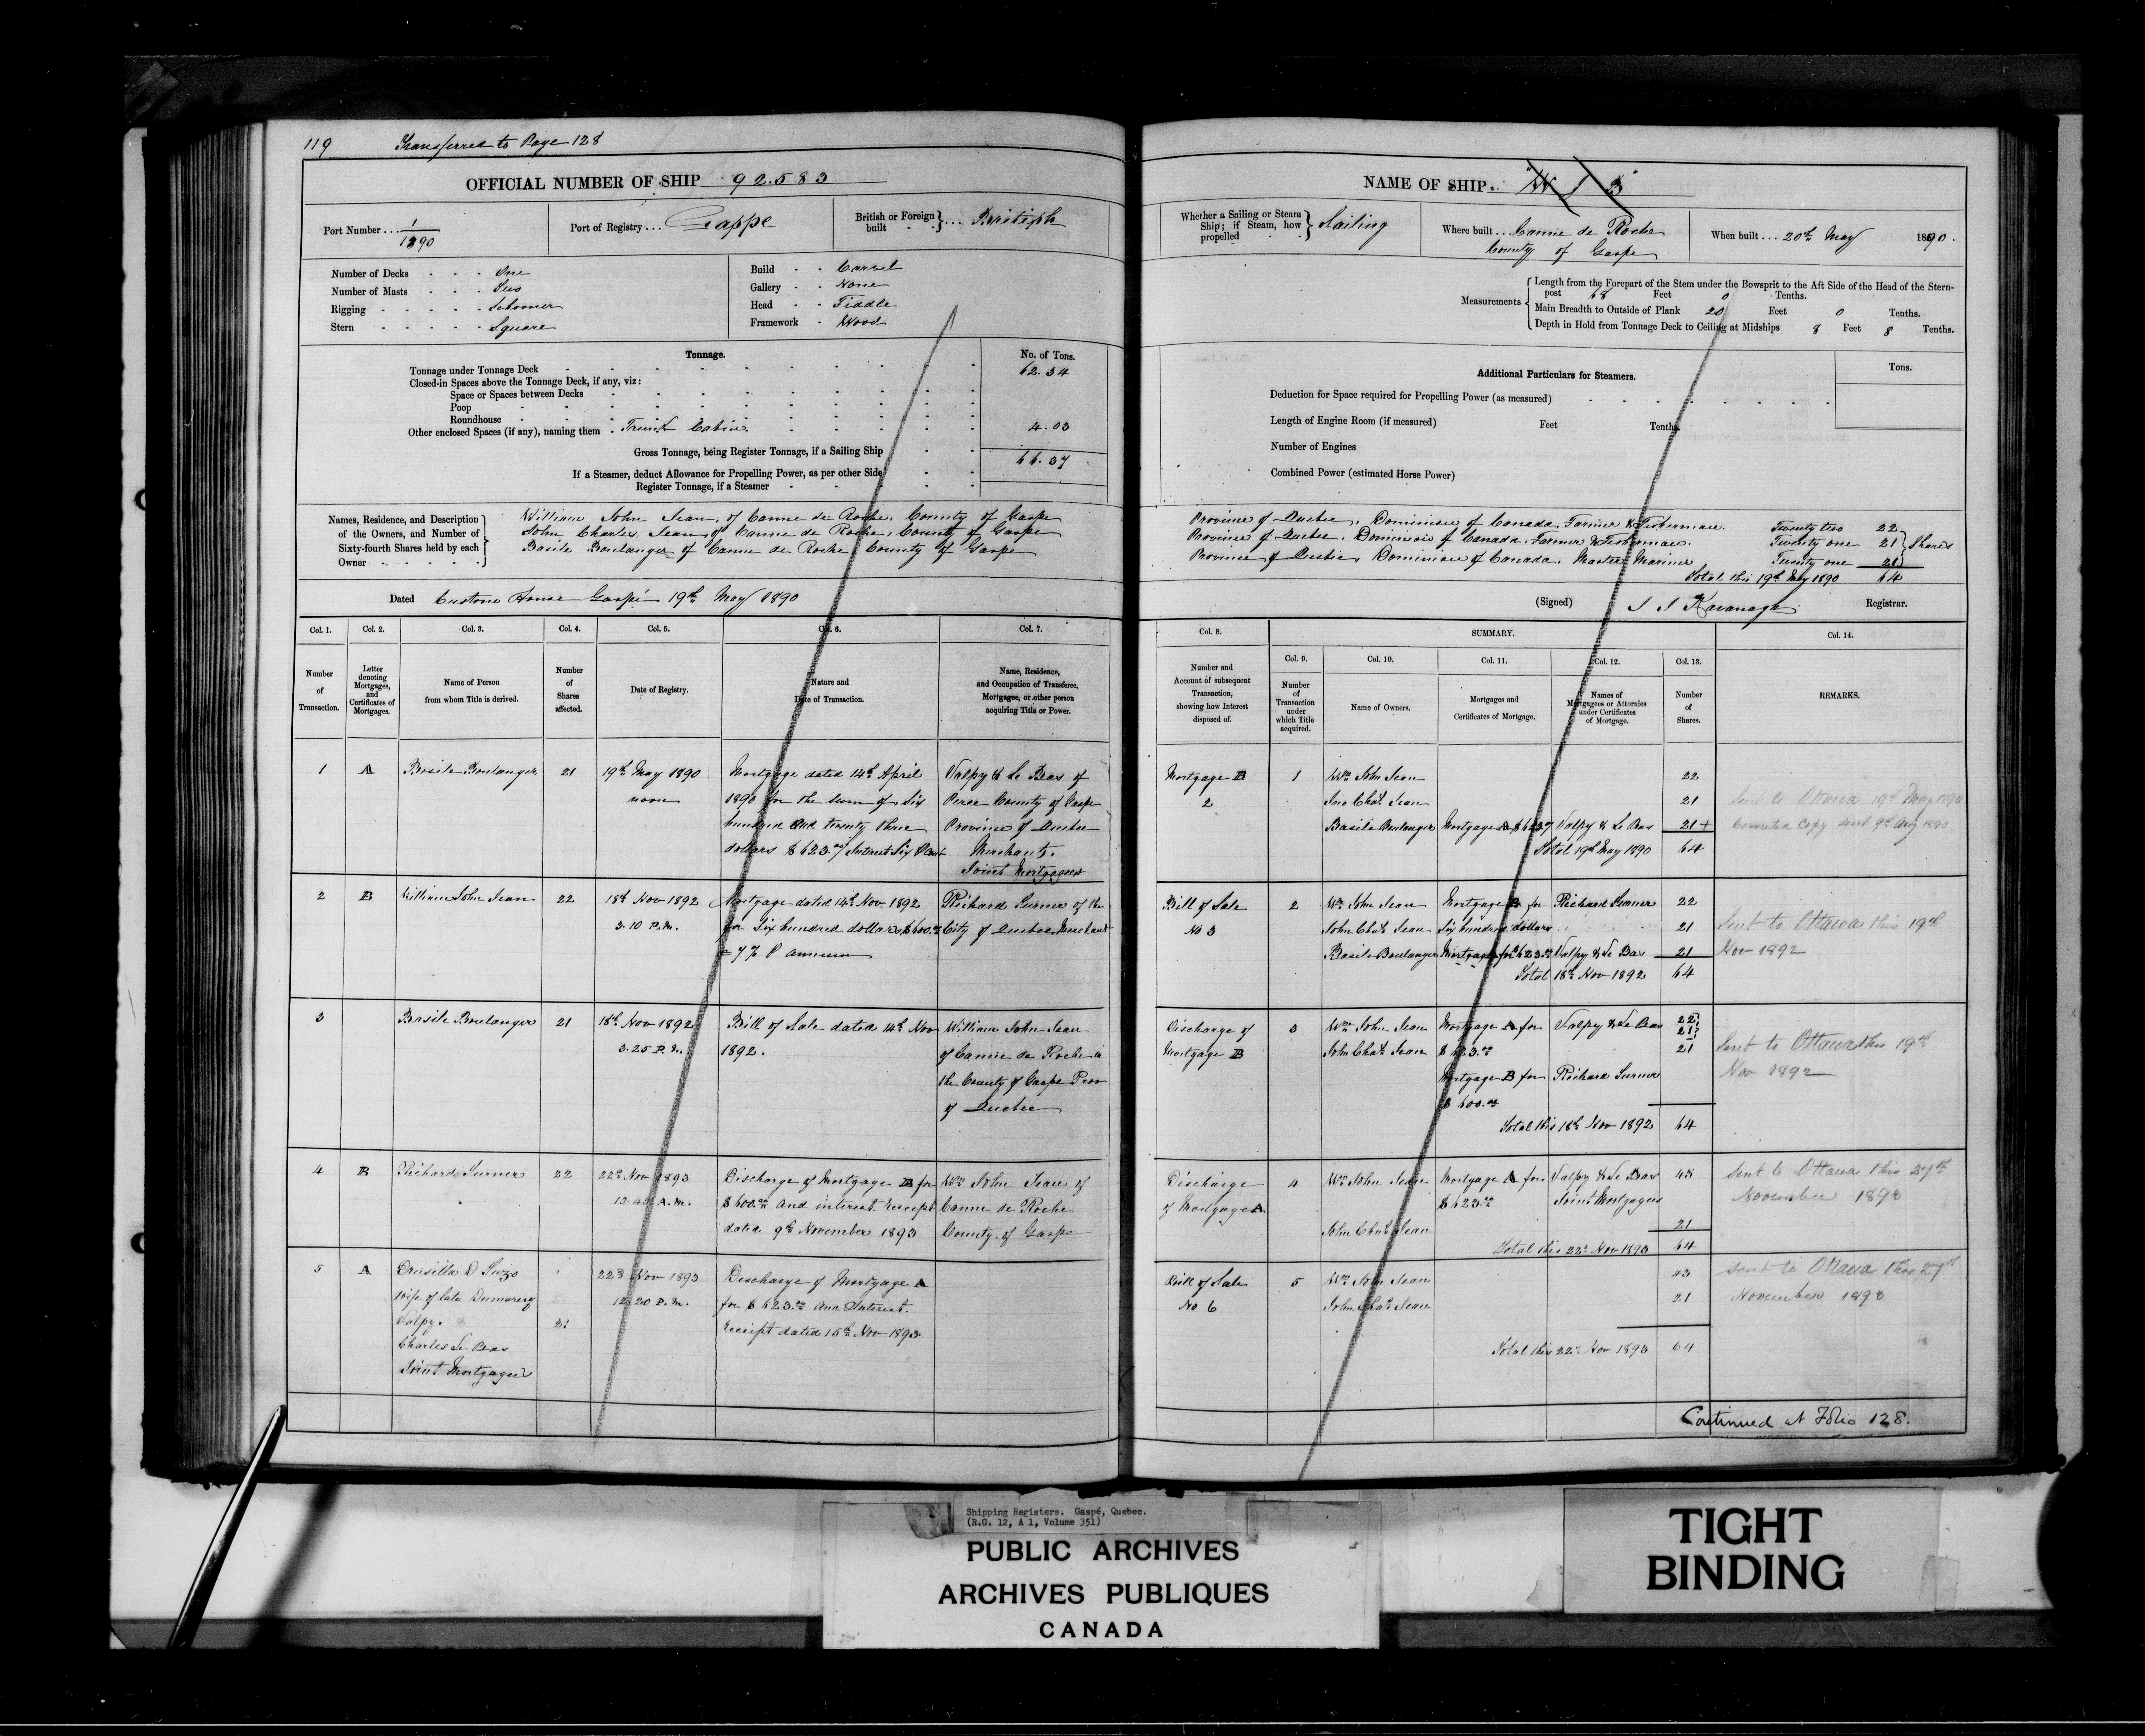 119 Transferred to Page 128
OFFICIAL NUMBER OF SHIP 92.583
Port Number . . . 1/1890
Port of Registry . . . Gaspe
British or Foreign built . . . British
Number of Decks - - - One
Number of Masts - - - Two
Rigging - - - - Schooner
Stern - - - - Square
Build - - Carvel
Gallery - - None
Head - - Fiddle
Framework - Wood
Tonnage.
No. of Tons.
Tonnage under Tonnage Deck 62.34
Closed-in Spaces above the Tonnage Deck, if any, viz:
Space or Spaces between Decks
Poop
Roundhouse
Other enclosed Spaces (if any), naming them - Trunk Cabin 4.03
Gross Tonnage, being Register Tonnage, if a Sailing Ship 66.37
If a Steamer, deduct Allowance for Propelling Power, as per other Side
Register Tonnage, if a Steamer
Names, Residence, and Description of the Owners, and Number of Sixty-fourth Shares held by each Owner
William John Jean, of Canne de Roche, County of Gaspe
John Charles Jean, of Canne de Roche, County of Gaspe
Basile Boulanger of Canne de Roche County of Gaspe
Dated Custom House Gaspé 19th May 1890
Col. 1. Col. 2. Col. 3. Col. 4. Col. 5. Col. 6. Col. 7.
Number of Transaction.
Letter denoting Mortgages, and Certificates of Mortgages.
Name of Person from whom Title is derived.
Number of Shares affected.
Date of Registry.
Nature and Date of Transaction.
Name, Residence, and Occupation of Transferee, Mortgagee, or other person acquiring Title or Power.
1 A Basile Boulanger 21 19th May 1890 Mortgage dated 14th April Valpy & Le Bas of
noon 1890 for the sum of Six Perce County of Gaspe
hundred and twenty three Province of Quebec
dollars $623.00 Interest Six P Cent Merchants.
Joint Mortgagees
2 B William John Jean 22 18th Nov 1892 Mortgage dated 14th Nov 1892 Richard Turner of the
3.10 P.M. for Six hundred dollars $600.00 City of Quebec Merchant
7% P annum
3 Basile Boulanger 21 18th Nov 1892 Bill of Sale dated 14th Nov William John Jean
3.25 P.M. 1892. of Canne de Roche in
the County of Gaspe Prov
of Quebec
4 B Richard Turner 22 22nd Nov 1893 Discharge of Mortgage B for Wm John Jean of
A.M. $600.00 and interest. receipt Canne de Roche
dated 9th November 1893 County of Gaspe
5 A 22nd Nov 1893 Discharge of Mortgage A
Wife of late Dumaresq 12.20 P.M. for $623.00 and Interest.
Valpy. 21 receipt dated 15th Nov 1893
Charles Le Bas
Joint Mortgagees
NAME OF SHIP. "W J B"
Whether a Sailing or Steam Ship; if Steam, how propelled Sailing
Where built . . . Canne de Roche
County of Gaspe
When built . . . 20th May 1890.
Measurements
Length from the Forepart of the Stem under the Bowsprit to the Aft Side of the Head of the Stern-
post 68 Feet 0 Tenths.
Main Breadth to Outside of Plank 20 Feet 0 Tenths.
Depth in Hold from Tonnage Deck to Ceiling at Midships 8 Feet 8 Tenths.
Additional Particulars for Steamers.
Tons.
Deduction for Space required for Propelling Power (as measured)
Length of Engine Room (if measured) Feet Tenths
Number of Engines
Combined Power (estimated Horse Power)
Province of Quebec, Dominion of Canada, Farmer & Fisherman. Twenty two 22
Province of Quebec, Dominion of Canada, Farmer & Fisherman. Twenty one 21 Shares
Province of Quebec Dominion of Canada. Master Mariner Twenty one 21
Total this 19th May 1890 64
(Signed) J J Kavanagh Registrar.
Col. 8. SUMMARY. Col. 14.
Col. 9. Col. 10. Col. 11. Col. 12. Col. 13.
Number and Account of subsequent Transaction, showing how Interest disposed of.
Number of Transaction under which Title acquired.
Name of Owners.
Mortgages and Certificates of Mortgage.
Names of Mortgagees or Attornies under Certificates of Mortgage.
Number of Shares.
REMARKS.
Mortgage B 1 Wm John Jean 22
2 Jno Chas Jean 21 Sent to Ottawa 19th May 1890
Basile Boulanger Mortgage A $623 Valpy & Le Bas 21 + Corrected Copy sent 9th Aug 1890
Total 19th May 1890 64
Bill of Sale 2 Wm John Jean Mortgage B for Richard Turner 22
No 3 John Chas Jean Six hundred dollars 21 Sent to Ottawa this 19th
Basile Boulanger Mortgage for $623.00 Valpy & Le Bas 21 Nov 1892
Total 18th Nov 1892 64
Discharge of 3 Wm John Jean Mortgage A for Valpy & Le Bas 22 21
Mortgage B John Chas Jean $623.00 21 Sent to Ottawa this 19th
Mortgage B for Richard Turner Nov 1892
$600.00
Total this 18th Nov 1892 64
Discharge 4 Wm John Jean Mortgage A for Valpy & Le Bas 43 Sent to Ottawa this 27th
of Mortgage A $623.00 Joint Mortgagees November 1893
John Chas Jean 21
Total this 22nd Nov 1893 64
Bill of Sale 5 Wm John Jean 43 Sent to Ottawa this 27th
No 6 John Chas Jean 21 November 1893
Total this 22nd Nov 1893 64
Continued at Folio 128.
Shipping Registers. Gaspé, Quebec.
(R.G. 12, A 1, Volume 351)
PUBLIC ARCHIVES
ARCHIVES PUBLIQUES
CANADA
TIGHT
BINDING